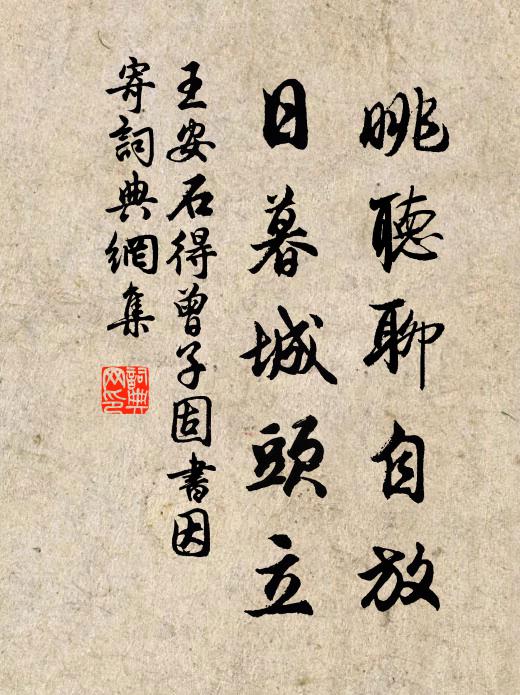 眺聽聊自放
日暮城頭立
王安石得曾子固書因
寄詞典網集
詞典
网印